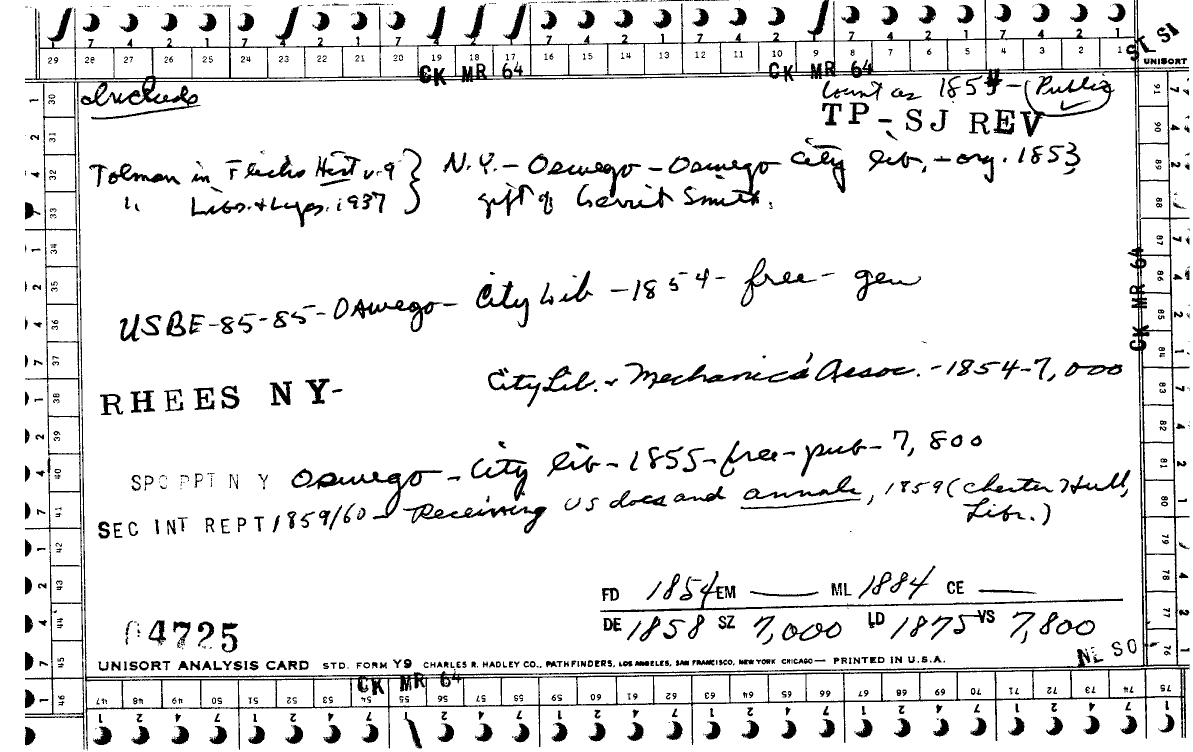 7 4 2 1 7 4 2 1 7 4 2 1 7 4 2 1 7 4 2 1 7 4 2 1
29 28 27 26 25 24 23 22 21 20 19 18 17 16 15 14 13 12 11 10 9 8 7 6 5 4 3 2 1
SL SI
UNISORT
CK MR 64 CK MR 64
Include
count as 1854 - (Public)
TP-SJ REV
Tolman in Flicks Hist v.9 } N.Y. - Oswego - Oswego City lib. - org. 1853,
" Libs. & Lyps. 1937 } gift of Gerrit Smith.
USBE-85-85-Oswego - City Lib - 1854 - free - gen
RHEES NY- City Lib. & Mechanics' Assoc. - 1854 - 7,000
SPC PPT N Y Oswego - City lib - 1855 - free - pub - 7,800
SEC INT REPT 1859/60 - Receiving US docs and annals, 1859 (Chester Hull,
Libr.)
CK MR 64
FD 1854 EM — ML 1884 CE —
DE 1858 SZ 7,000 LD 1875 VS 7,800
04725
NL SO
UNISORT ANALYSIS CARD STD. FORM Y9 CHARLES R. HADLEY CO., PATHFINDERS, LOS ANGELES, SAN FRANCISCO, NEW YORK CHICAGO — PRINTED IN U.S.A.
CK MR 64
47 48 49 50 51 52 53 54 55 56 57 58 59 60 61 62 63 64 65 66 67 68 69 70 71 72 73 74 75